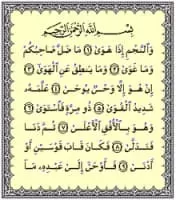 بِسْمِ ٱللَّهِ ٱلرَّحْمَٰنِ ٱلرَّحِيمِ
وَٱلنَّجْمِ إِذَا هَوَىٰ ١ مَا ضَلَّ صَاحِبُكُمْ
وَمَا غَوَىٰ ٢ وَمَا يَنطِقُ عَنِ ٱلْهَوَىٰ ٣
إِنْ هُوَ إِلَّا وَحْىٌ يُوحَىٰ ٤ عَلَّمَهُۥ
شَدِيدُ ٱلْقُوَىٰ ٥ ذُو مِرَّةٍ فَٱسْتَوَىٰ ٦
وَهُوَ بِٱلْأُفُقِ ٱلْأَعْلَىٰ ٧ ثُمَّ دَنَا
فَتَدَلَّىٰ ٨ فَكَانَ قَابَ قَوْسَيْنِ أَوْ
أَدْنَىٰ ٩ فَأَوْحَىٰٓ إِلَىٰ عَبْدِهِۦ مَآ